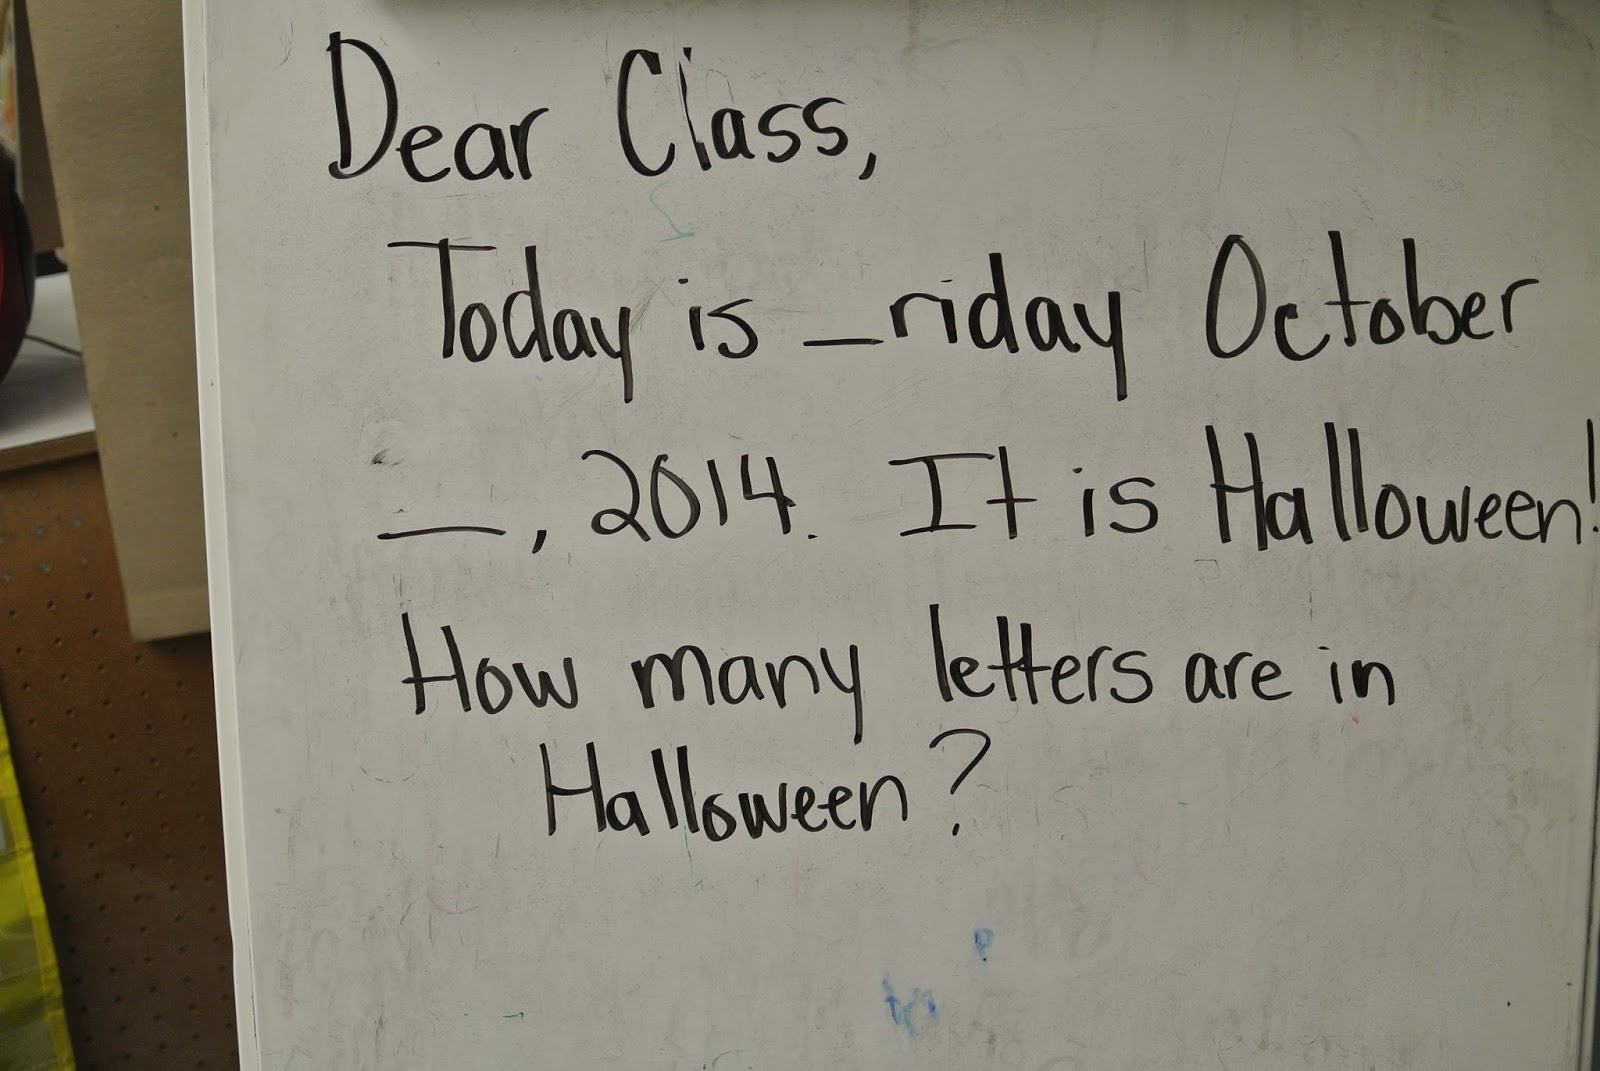 Dear Class,
Today is _riday October
__, 2014. It is Halloween!
How many letters are in
Halloween?